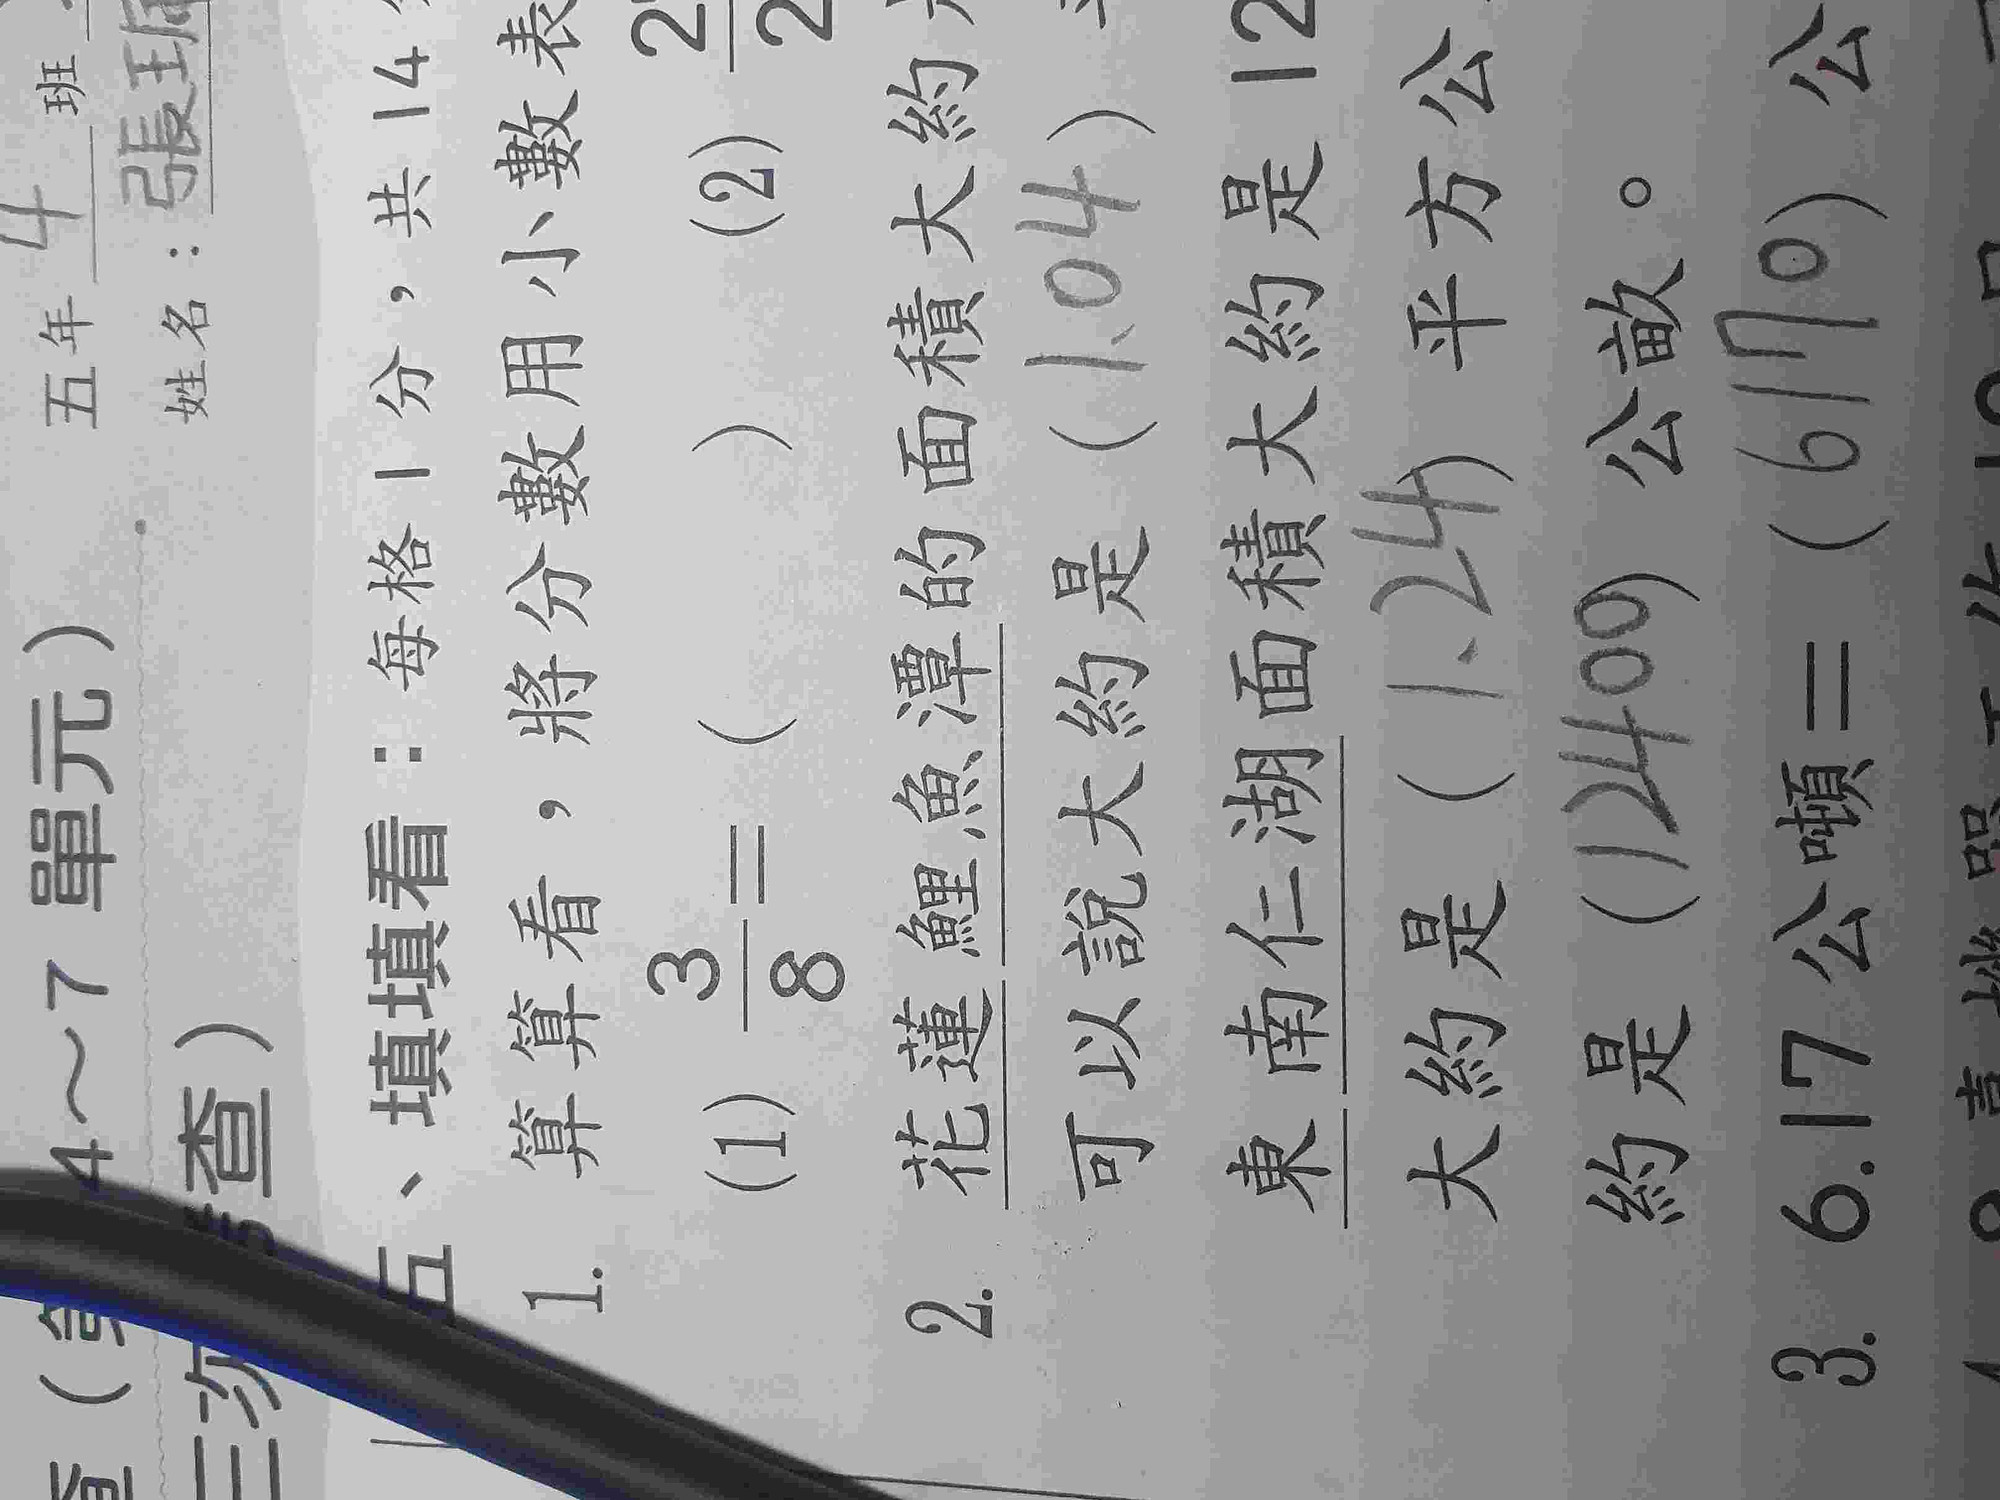 4～7 單元） 五年 4 班
三次 查） 姓名：張
五、填填看：每格1分，共14
1. 算算看，將分數用小數表
(1) 3/8 ＝（ ） (2) 2
2. 花蓮鯉魚潭的面積大約
可以說大約是（1.04）
東南仁湖面積大約是12
大約是（1.24）平方公
約是（12400）公畝。
3. 6.17公噸＝（6170）公